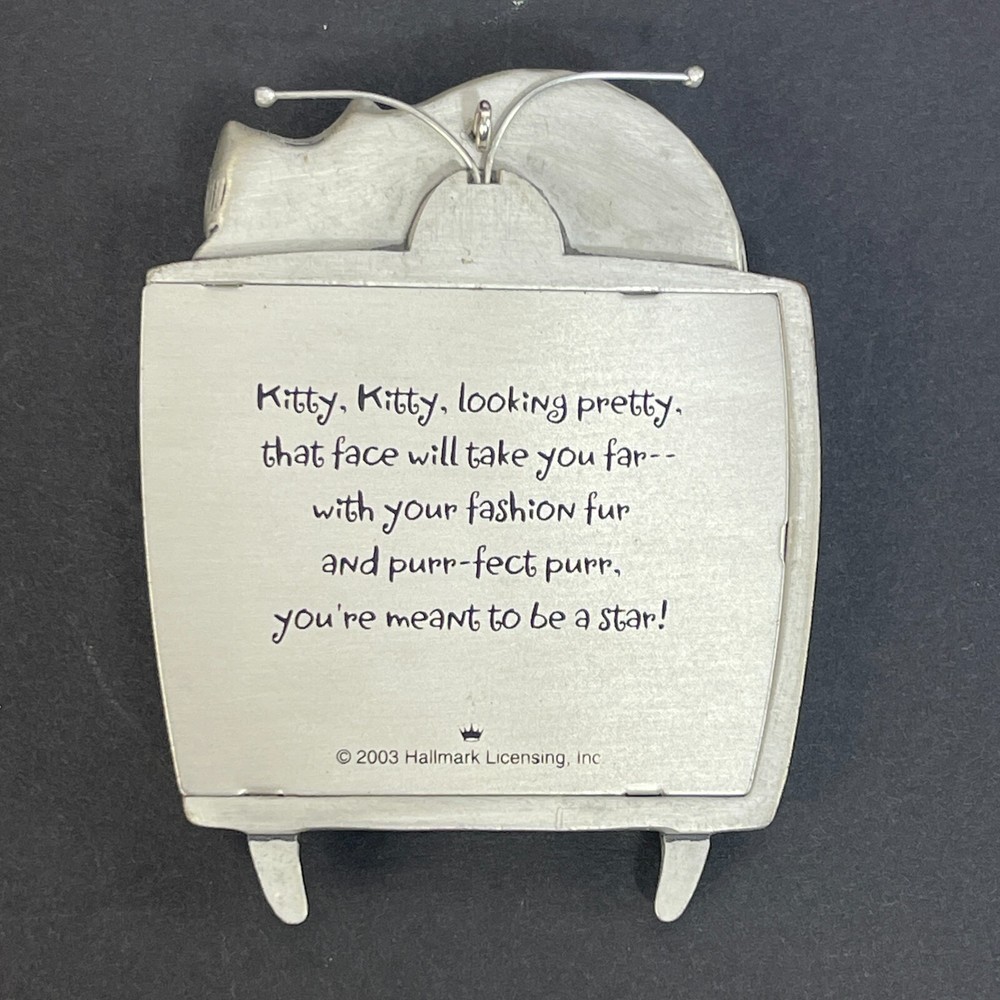 Kitty, Kitty, looking pretty,
that face will take you far--
with your fashion fur
and purr-fect purr,
you're meant to be a star!
© 2003 Hallmark Licensing, Inc